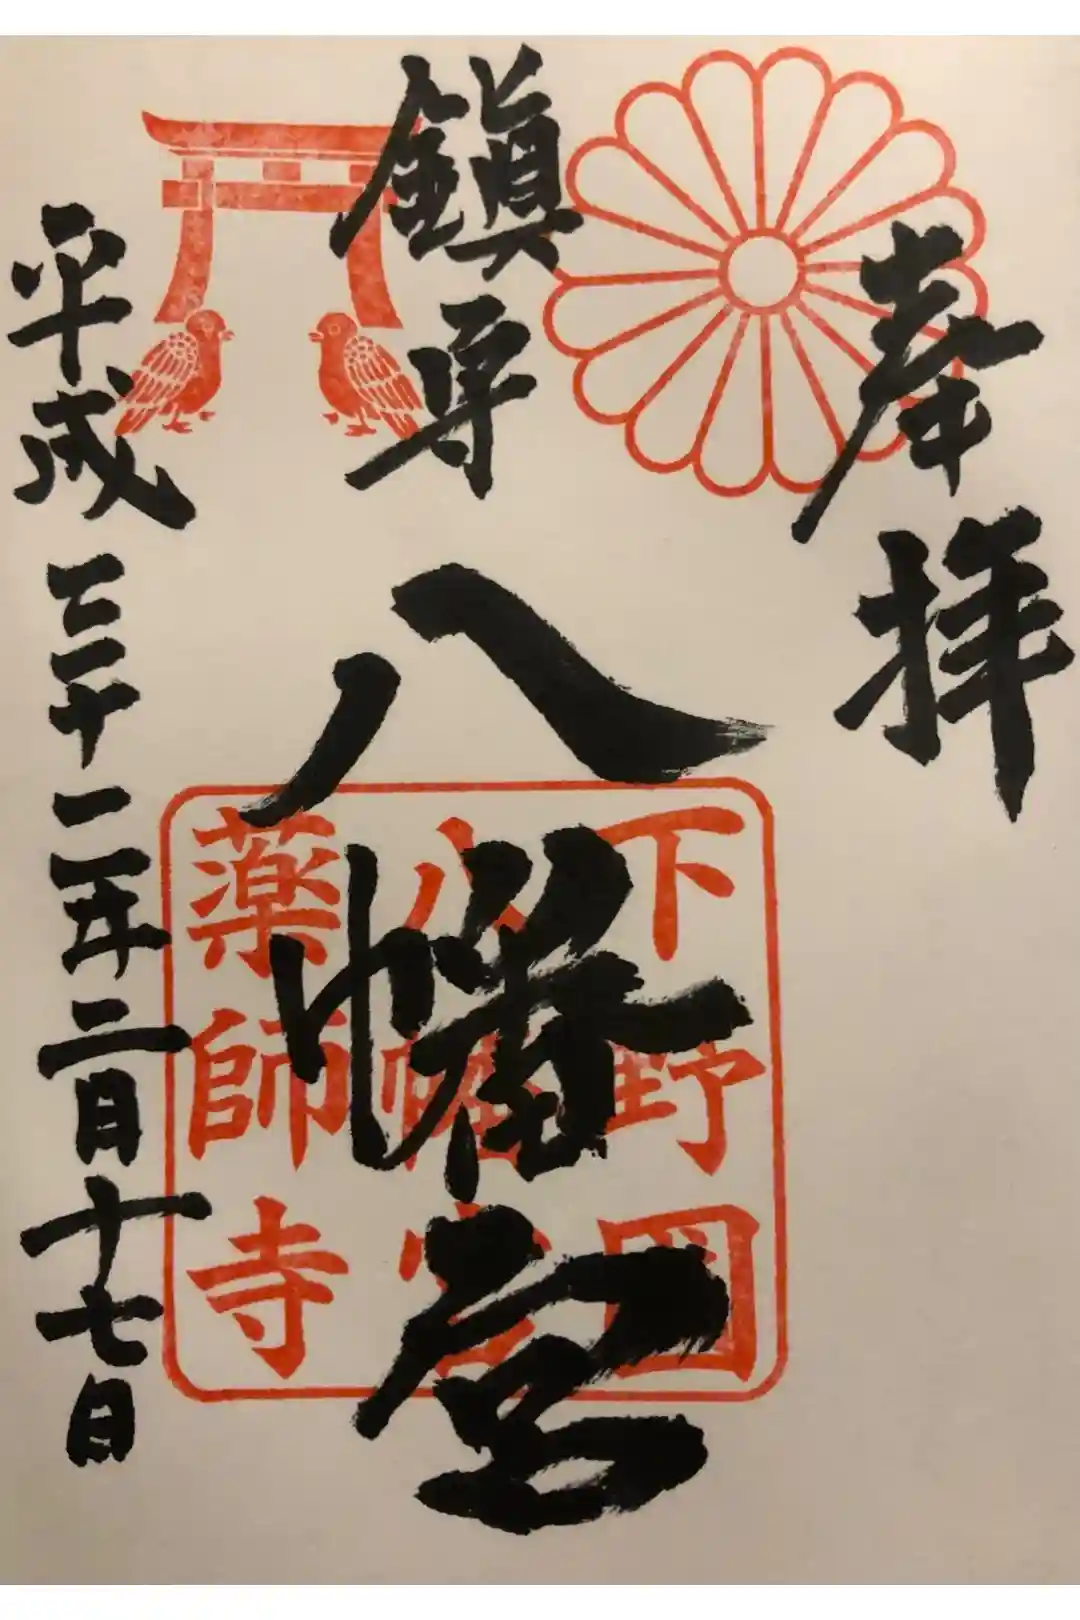 奉拝
鎮守
八幡宮
平成三十一年二月十七日
下野國
八幡宮
薬師寺